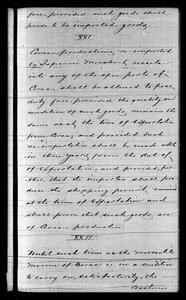 fore provided such goods shall
prove to be imported goods.
XXI.
Corean productions, re-imported
by Japanese Merchant vessels
into any of the open ports of
Corea, shall be allowed to pass
duty free provided the quality and
condition of such goods remain the
same from the time of Exportation
from Corea, and provided such
re-importation shall be made with-
in three years from the date of
of Exportation, and provided fur-
ther, that the importer shall pro-
duce the shipping permit issued
at the time of Exportation and
shall prove that such goods, are
of Corean production.
XXII.
Until such time as the
Marine of Corea is in a condition
to carry on, satisfactorily, the